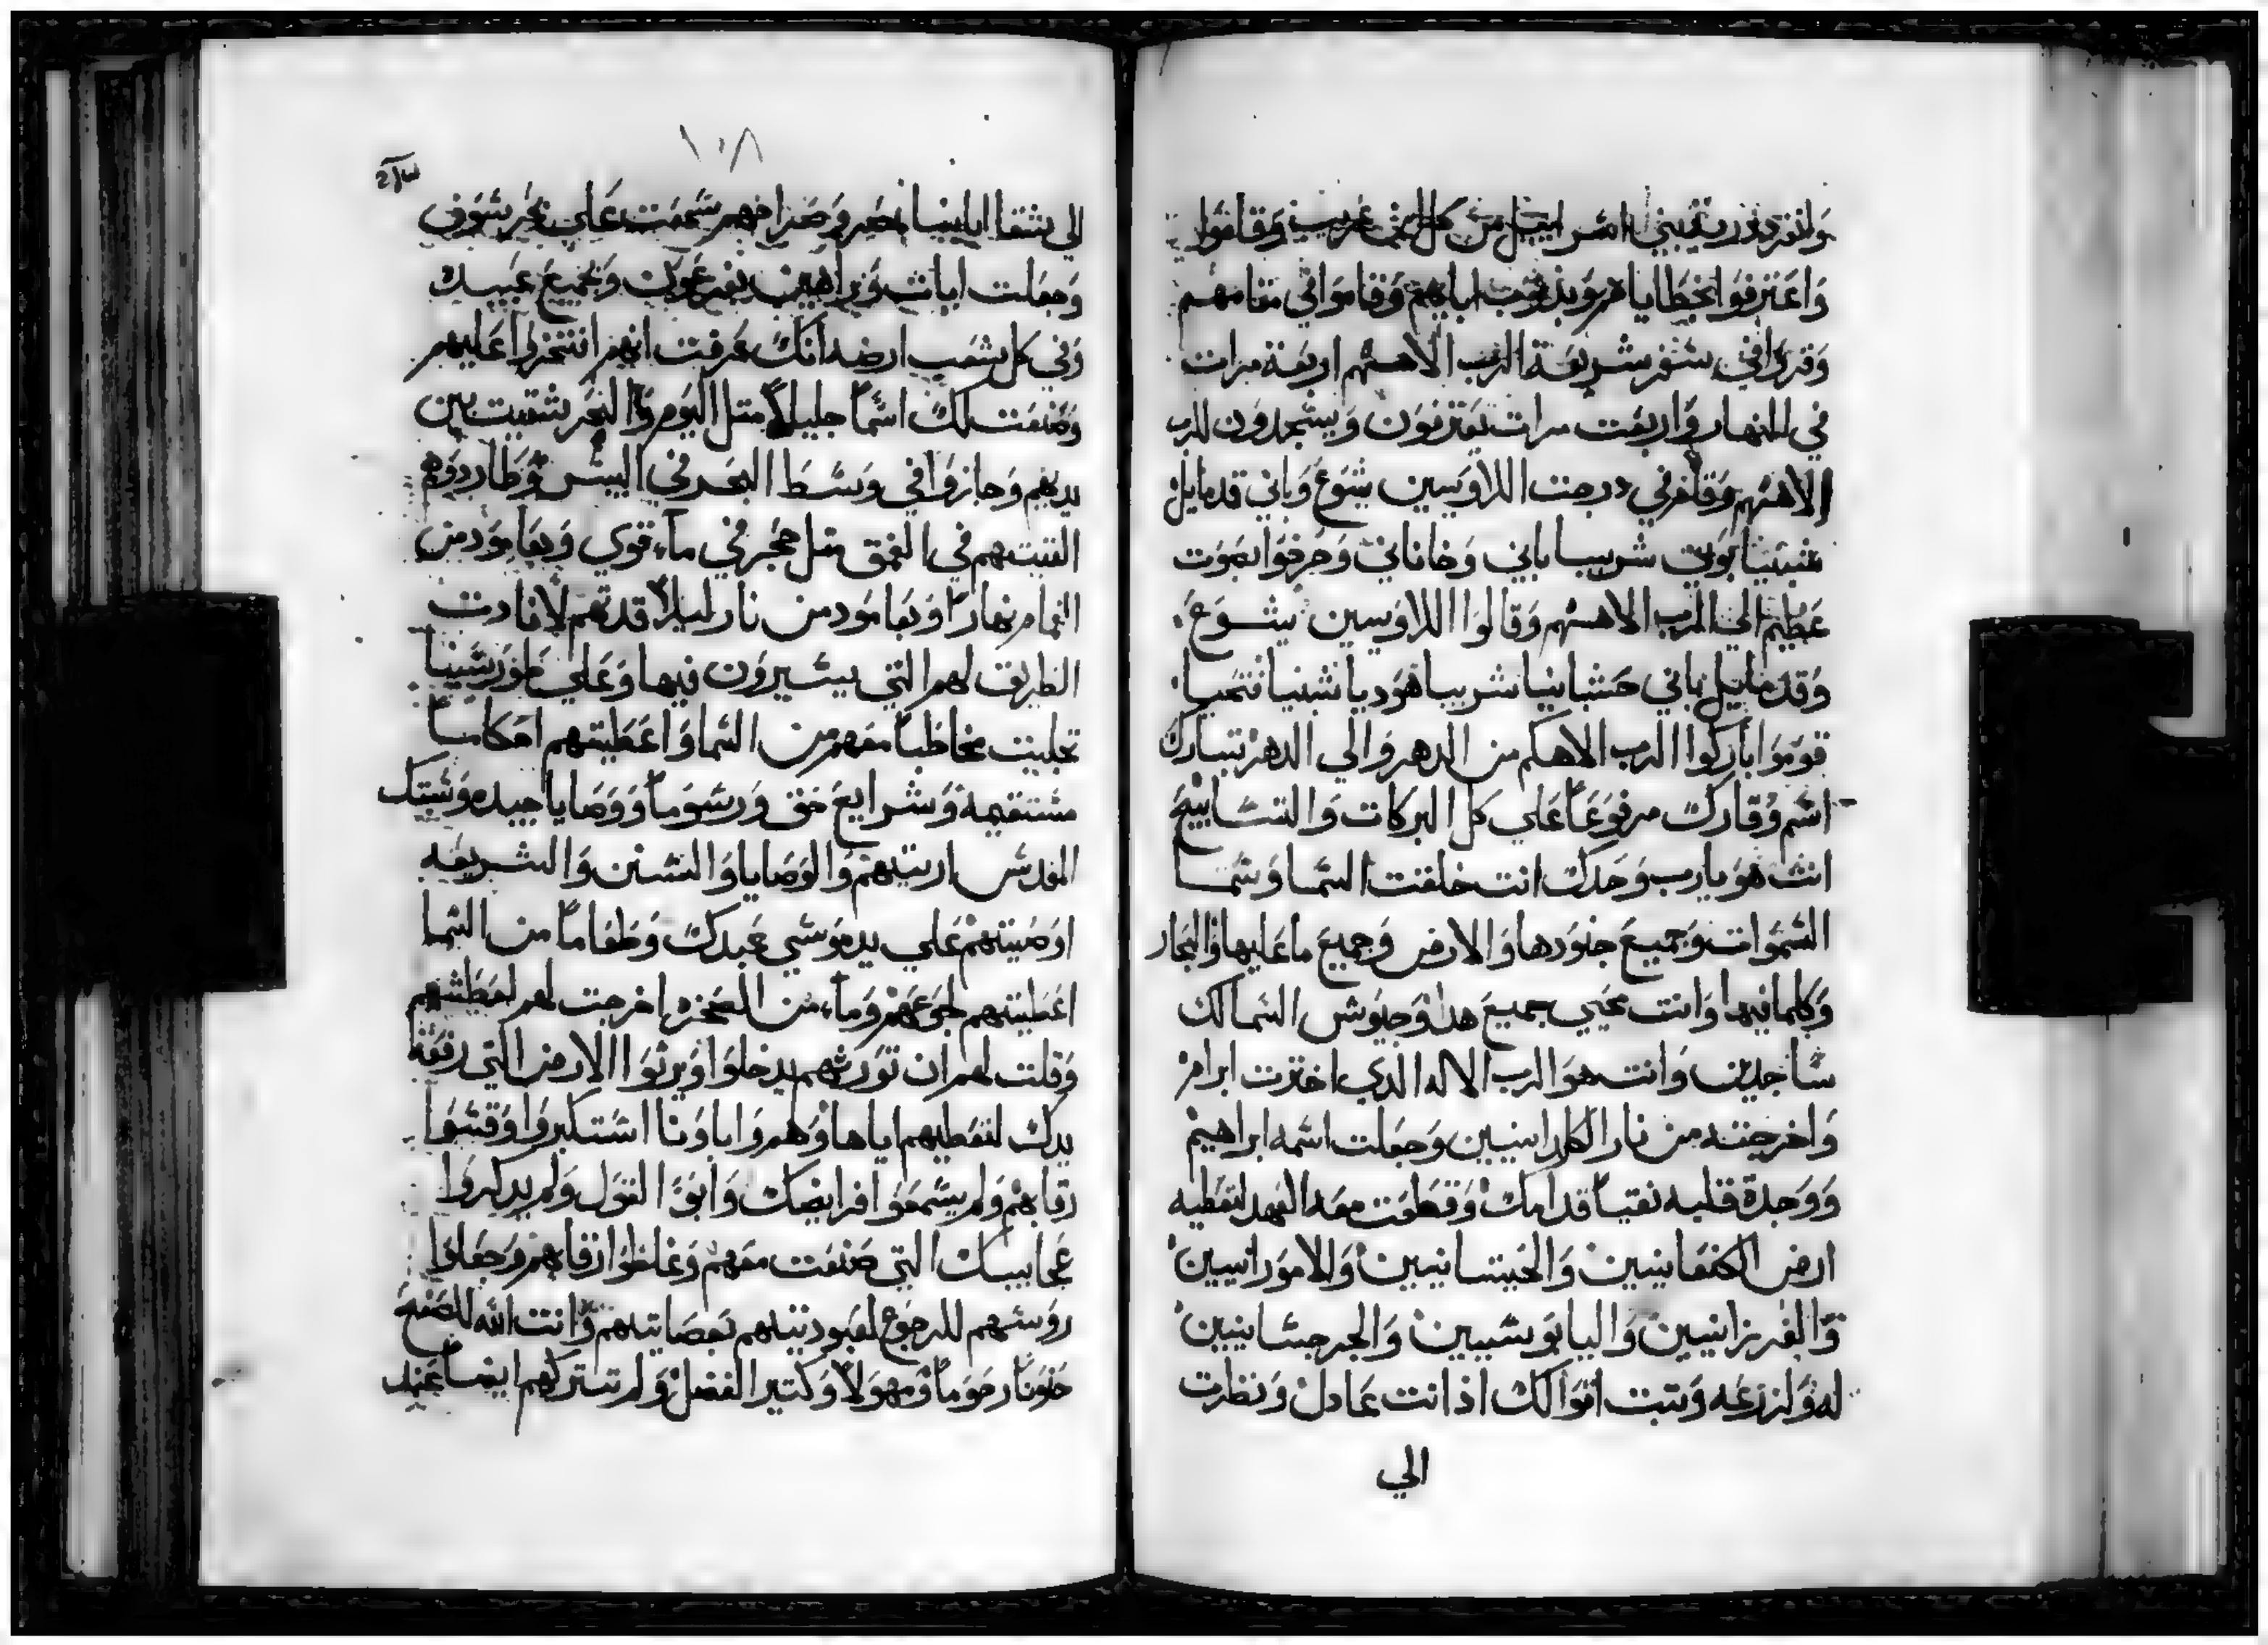 وانفرد ذرية بني اسراييل من كل ابن غريب وقاموا
واعترفوا بخطاياهم وبذنوب ابايهم وقاموا في مقامهم
وقروا في سفر شريعة الرب الاههم اربعة مرات
في النهار واربعت مرات يعترفون ويسجدون للرب
الاههم وقام في درجت اللاويين يشوع وباني قدمايل
شبنيا بوني شريبيا باني وخاناني وصرخوا بصوت
عظيم الي الرب الاههم وقالوا اللاويين يشوع
وقدمايل باني حشبانيا شريبيا هوديا شبنيا فتحيا
قوموا باركوا الرب الاهكم من الدهر والي الدهر تبارك
اسم وقارك مرفوعا علي كل البركات والتسابيح
انت هو يارب وحدك انت خلقت السما وسما
السموات وجميع جنودها والارض وجميع ما عليها والبحار
وكلما فيها وانت تحيي جميع هدا وجيوش السما لك
ساجدين وانت هو الرب الاله الدي اخترت ابرام
واخرجته من نار الكلدانيين وجعلت اسمه ابراهيم
ووجدة قلبه نقيا قدامك وقطعت معه العهد لتعطيه
ارض الكنعانيين والحيتانيين والامورانيين
والفرزانيين واليابوسيين والجرجسانيين
له ولزرعه وتبت اقوالك اذ انت عادل ونظرت
الي
١٠٨
الي شقا اباينا بمصر وصراخهم سمعت علي بحر سوف
وجعلت ايات وبراهين بفرعون وبجميع عبيده
وفي كل شعب ارضه انك عرفت انهم افتخروا عليهم
وصنعت لك اسما جليلا متل اليوم والبحر شقيت بين
يديهم وجازوا في وسط البحر في اليبس وطاردوهم
القيتهم في العمق متل حجر في ماء قوي وبعامود من
الغمام نهارا وبعامود من نار ليلا قدتهم لانارت
الطريق لهم التي يسيرون فيها وعلي طور سينا
تجليت مخاطبا معهم من السما واعطيتهم احكاما
مستقيمة وشرايع حق ورسوما ووصايا جيده وسبتك
المقدس اريتهم والوصايا والسنن والشريعه
اوصيتهم علي يد موسي عبدك وطعاما من السما
اعطيتهم لجوعهم وماء من الصخره اخرجت لهم لعطشهم
وقلت لهم ان تورثهم يدخلوا ويرثوا الارض التي رفعة
يدك لتعطيهم اياها وهم واباونا استكبروا وقسوا
رقابهم ولم يسمعوا فرايضك وابوا القول ولم يدكروا
عجايبك التي صنعت معهم وغلظوا رقابهم وجعلوا
روسهم للرجوع لعبوديتهم بعصاتهم وانت الله للصفح
حنونا رحوما ومهولا وكتير الفضل ولم تتركهم ايضا عند